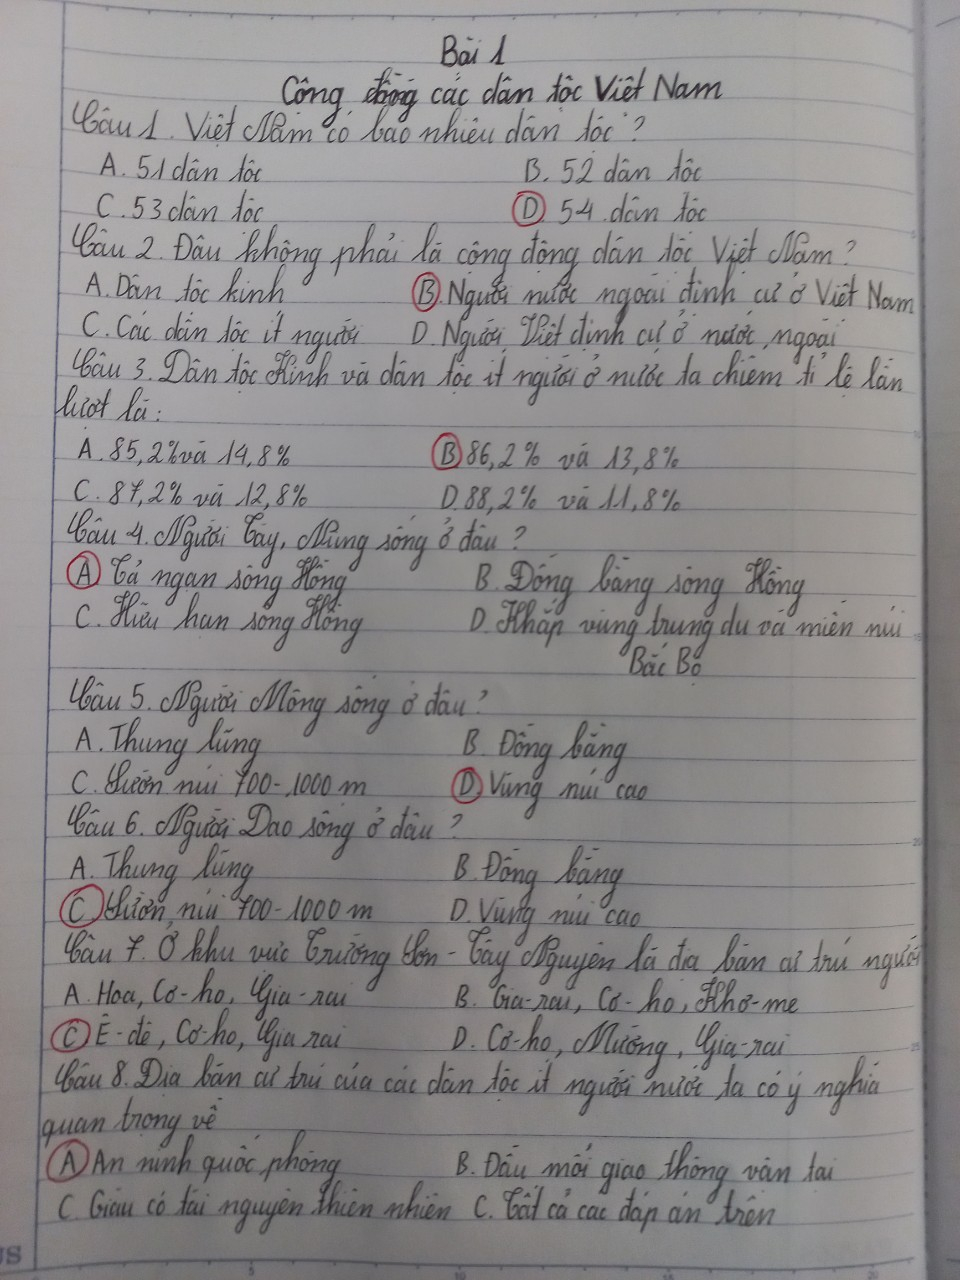 Bài 1
Cộng đồng các dân tộc Việt Nam
Câu 1. Việt Nam có bao nhiêu dân tộc?
A. 51 dân tộc B. 52 dân tộc
C. 53 dân tộc D 54 dân tộc
Câu 2. Đâu không phải là cộng đồng dân tộc Việt Nam?
A. Dân tộc kinh B. Người nước ngoài định cư ở Việt Nam
C. Các dân tộc ít người D. Người Việt định cư ở nước ngoài
Câu 3. Dân tộc Kinh và dân tộc ít người ở nước ta chiếm tỉ lệ lần
lượt là:
A. 85,2% và 14,8% B 86,2% và 13,8%
C. 87,2% và 12,8% D. 88,2% và 11,8%
Câu 4. Người Tày, Nùng sống ở đâu?
A Tả ngạn sông Hồng B. Đồng bằng sông Hồng
C. Hữu hạn sông Hồng D. Khắp vùng trung du và miền núi
Bắc Bộ
Câu 5. Người Mông sống ở đâu?
A. Thung lũng B. Đồng bằng
C. Sườn núi 700-1000 m D. Vùng núi cao
Câu 6. Người Dao sống ở đâu?
A. Thung lũng B. Đồng bằng
C Sườn núi 700-1000 m D. Vùng núi cao
Câu 7. Ở khu vực Trường Sơn - Tây Nguyên là địa bàn cư trú người
A. Hoa, Cơ-ho, Gia-rai B. Gia-rai, Cơ-ho, Khơ-me
C Ê-đê, Cơ-ho, Gia rai D. Cơ-ho, Mường, Gia-rai
Câu 8. Địa bàn cư trú của các dân tộc ít người nước ta có ý nghĩa
quan trọng về
A An ninh quốc phòng B. Đầu mối giao thông vận tải
C. Giàu có tài nguyên thiên nhiên C. Tất cả các đáp án trên